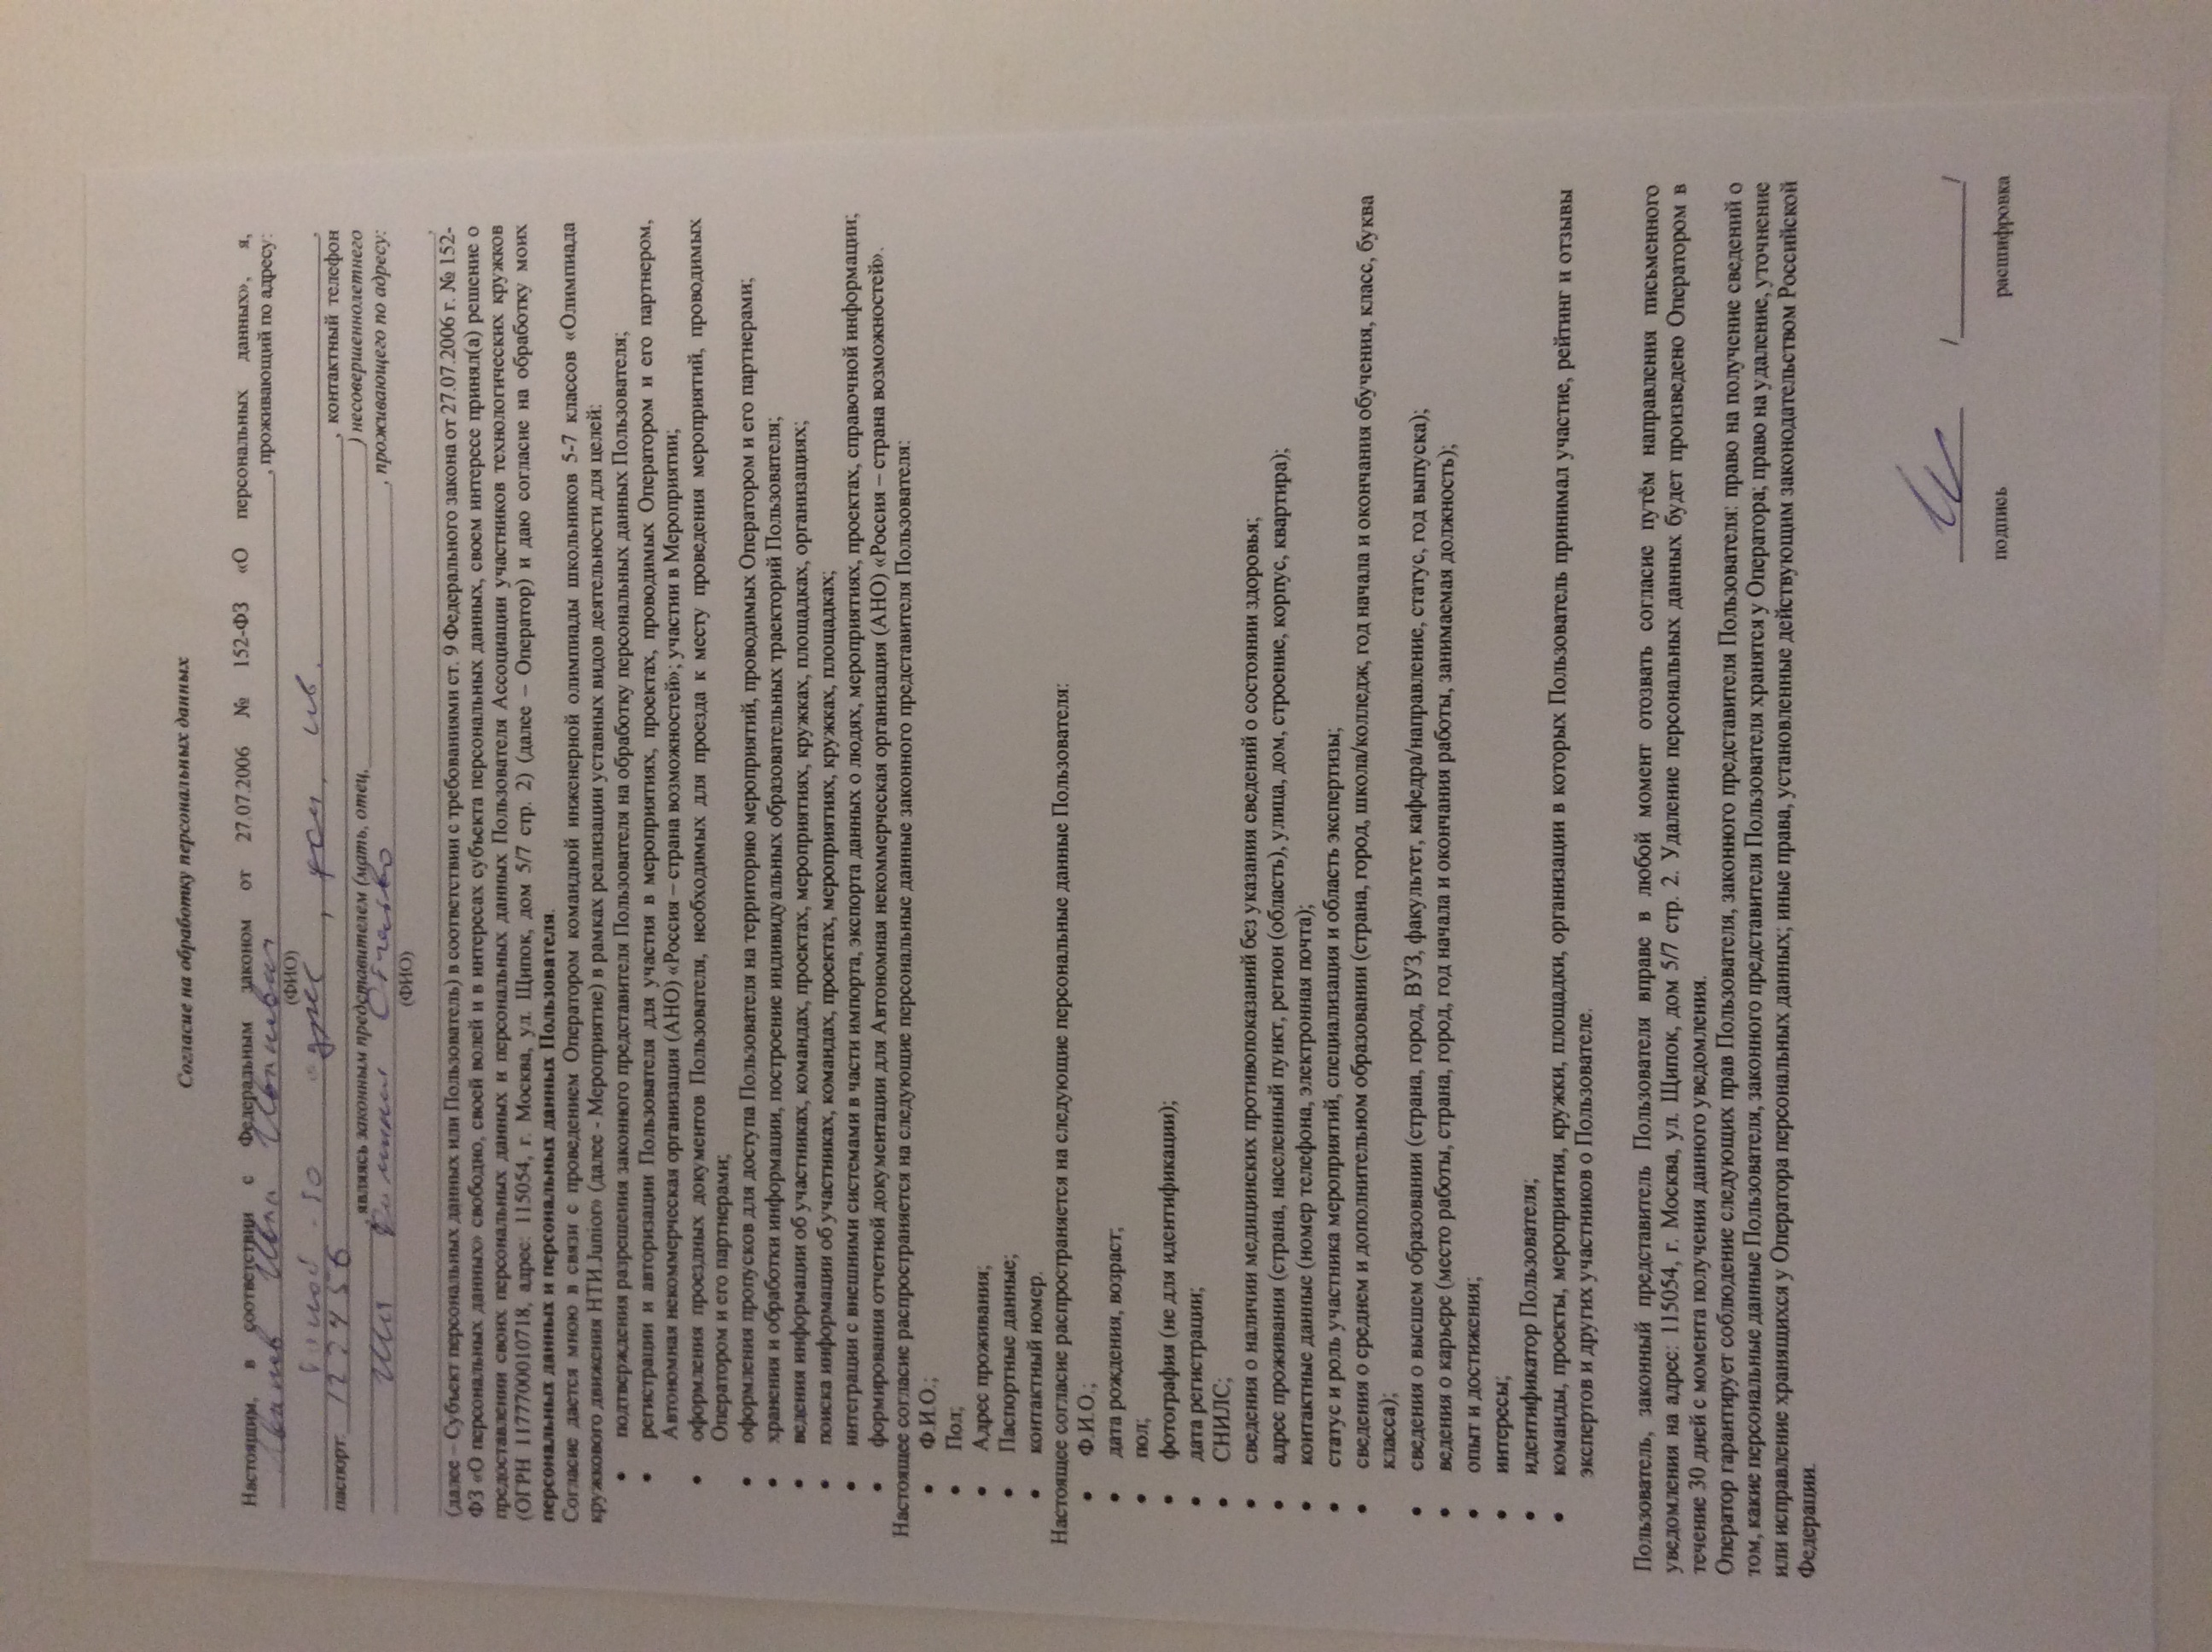 Согласие на обработку персональных данных
Настоящим, в соответствии с Федеральным законом от 27.07.2006 № 152-ФЗ «О персональных данных», я,
Иванов Иван Иванович, проживающий по адресу:
(ФИО)
какой-то адрес, дом, кв.
паспорт 123456, контактный телефон
, являясь законным представителем (мать, отец, ) несовершеннолетнего
Имя Фамилия Отчество, проживающего по адресу:
(ФИО)
(далее – Субъект персональных данных или Пользователь) в соответствии с требованиями ст. 9 Федерального закона от 27.07.2006 г. № 152-
ФЗ «О персональных данных» свободно, своей волей и в интересах субъекта персональных данных, своем интересе принял(а) решение о
предоставлении своих персональных данных и персональных данных Пользователя Ассоциации участников технологических кружков
(ОГРН 1177700010718, адрес: 115054, г. Москва, ул. Щипок, дом 5/7 стр. 2) (далее – Оператор) и даю согласие на обработку моих
персональных данных и персональных данных Пользователя.
Согласие дается мною в связи с проведением Оператором командной инженерной олимпиады школьников 5-7 классов «Олимпиада
кружкового движения НТИ.Junior» (далее - Мероприятие) в рамках реализации уставных видов деятельности для целей:
• подтверждения разрешения законного представителя Пользователя на обработку персональных данных Пользователя;
• регистрации и авторизации Пользователя для участия в мероприятиях, проектах, проводимых Оператором и его партнером,
Автономная некоммерческая организация (АНО) «Россия – страна возможностей»; участии в Мероприятии;
• оформления проездных документов Пользователя, необходимых для проезда к месту проведения мероприятий, проводимых
Оператором и его партнерами;
• оформления пропусков для доступа Пользователя на территорию мероприятий, проводимых Оператором и его партнерами;
• хранения и обработки информации, построение индивидуальных образовательных траекторий Пользователя;
• ведения информации об участниках, командах, проектах, мероприятиях, кружках, площадках, организациях;
• поиска информации об участниках, командах, проектах, мероприятиях, кружках, площадках;
• интеграции с внешними системами в части импорта, экспорта данных о людях, мероприятиях, проектах, справочной информации;
• формирования отчетной документации для Автономная некоммерческая организация (АНО) «Россия – страна возможностей».
Настоящее согласие распространяется на следующие персональные данные законного представителя Пользователя:
• Ф.И.О.;
• Пол;
• Адрес проживания;
• Паспортные данные;
• контактный номер.
Настоящее согласие распространяется на следующие персональные данные Пользователя:
• Ф.И.О.;
• дата рождения, возраст;
• пол;
• фотография (не для идентификации);
• дата регистрации;
• СНИЛС;
• сведения о наличии медицинских противопоказаний без указания сведений о состоянии здоровья;
• адрес проживания (страна, населенный пункт, регион (область), улица, дом, строение, корпус, квартира);
• контактные данные (номер телефона, электронная почта);
• статус и роль участника мероприятий, специализация и область экспертизы;
• сведения о среднем и дополнительном образовании (страна, город, школа/колледж, год начала и окончания обучения, класс, буква
класса);
• сведения о высшем образовании (страна, город, ВУЗ, факультет, кафедра/направление, статус, год выпуска);
• ведения о карьере (место работы, страна, город, год начала и окончания работы, занимаемая должность);
• опыт и достижения;
• интересы;
• идентификатор Пользователя;
• команды, проекты, мероприятия, кружки, площадки, организации в которых Пользователь принимал участие, рейтинг и отзывы
экспертов и других участников о Пользователе.
Пользователь, законный представитель Пользователя вправе в любой момент отозвать согласие путём направления письменного
уведомления на адрес: 115054, г. Москва, ул. Щипок, дом 5/7 стр. 2. Удаление персональных данных будет произведено Оператором в
течение 30 дней с момента получения данного уведомления.
Оператор гарантирует соблюдение следующих прав Пользователя, законного представителя Пользователя: право на получение сведений о
том, какие персональные данные Пользователя, законного представителя Пользователя хранятся у Оператора; право на удаление, уточнение
или исправление хранящихся у Оператора персональных данных; иные права, установленные действующим законодательством Российской
Федерации.
/ /
подпись расшифровка